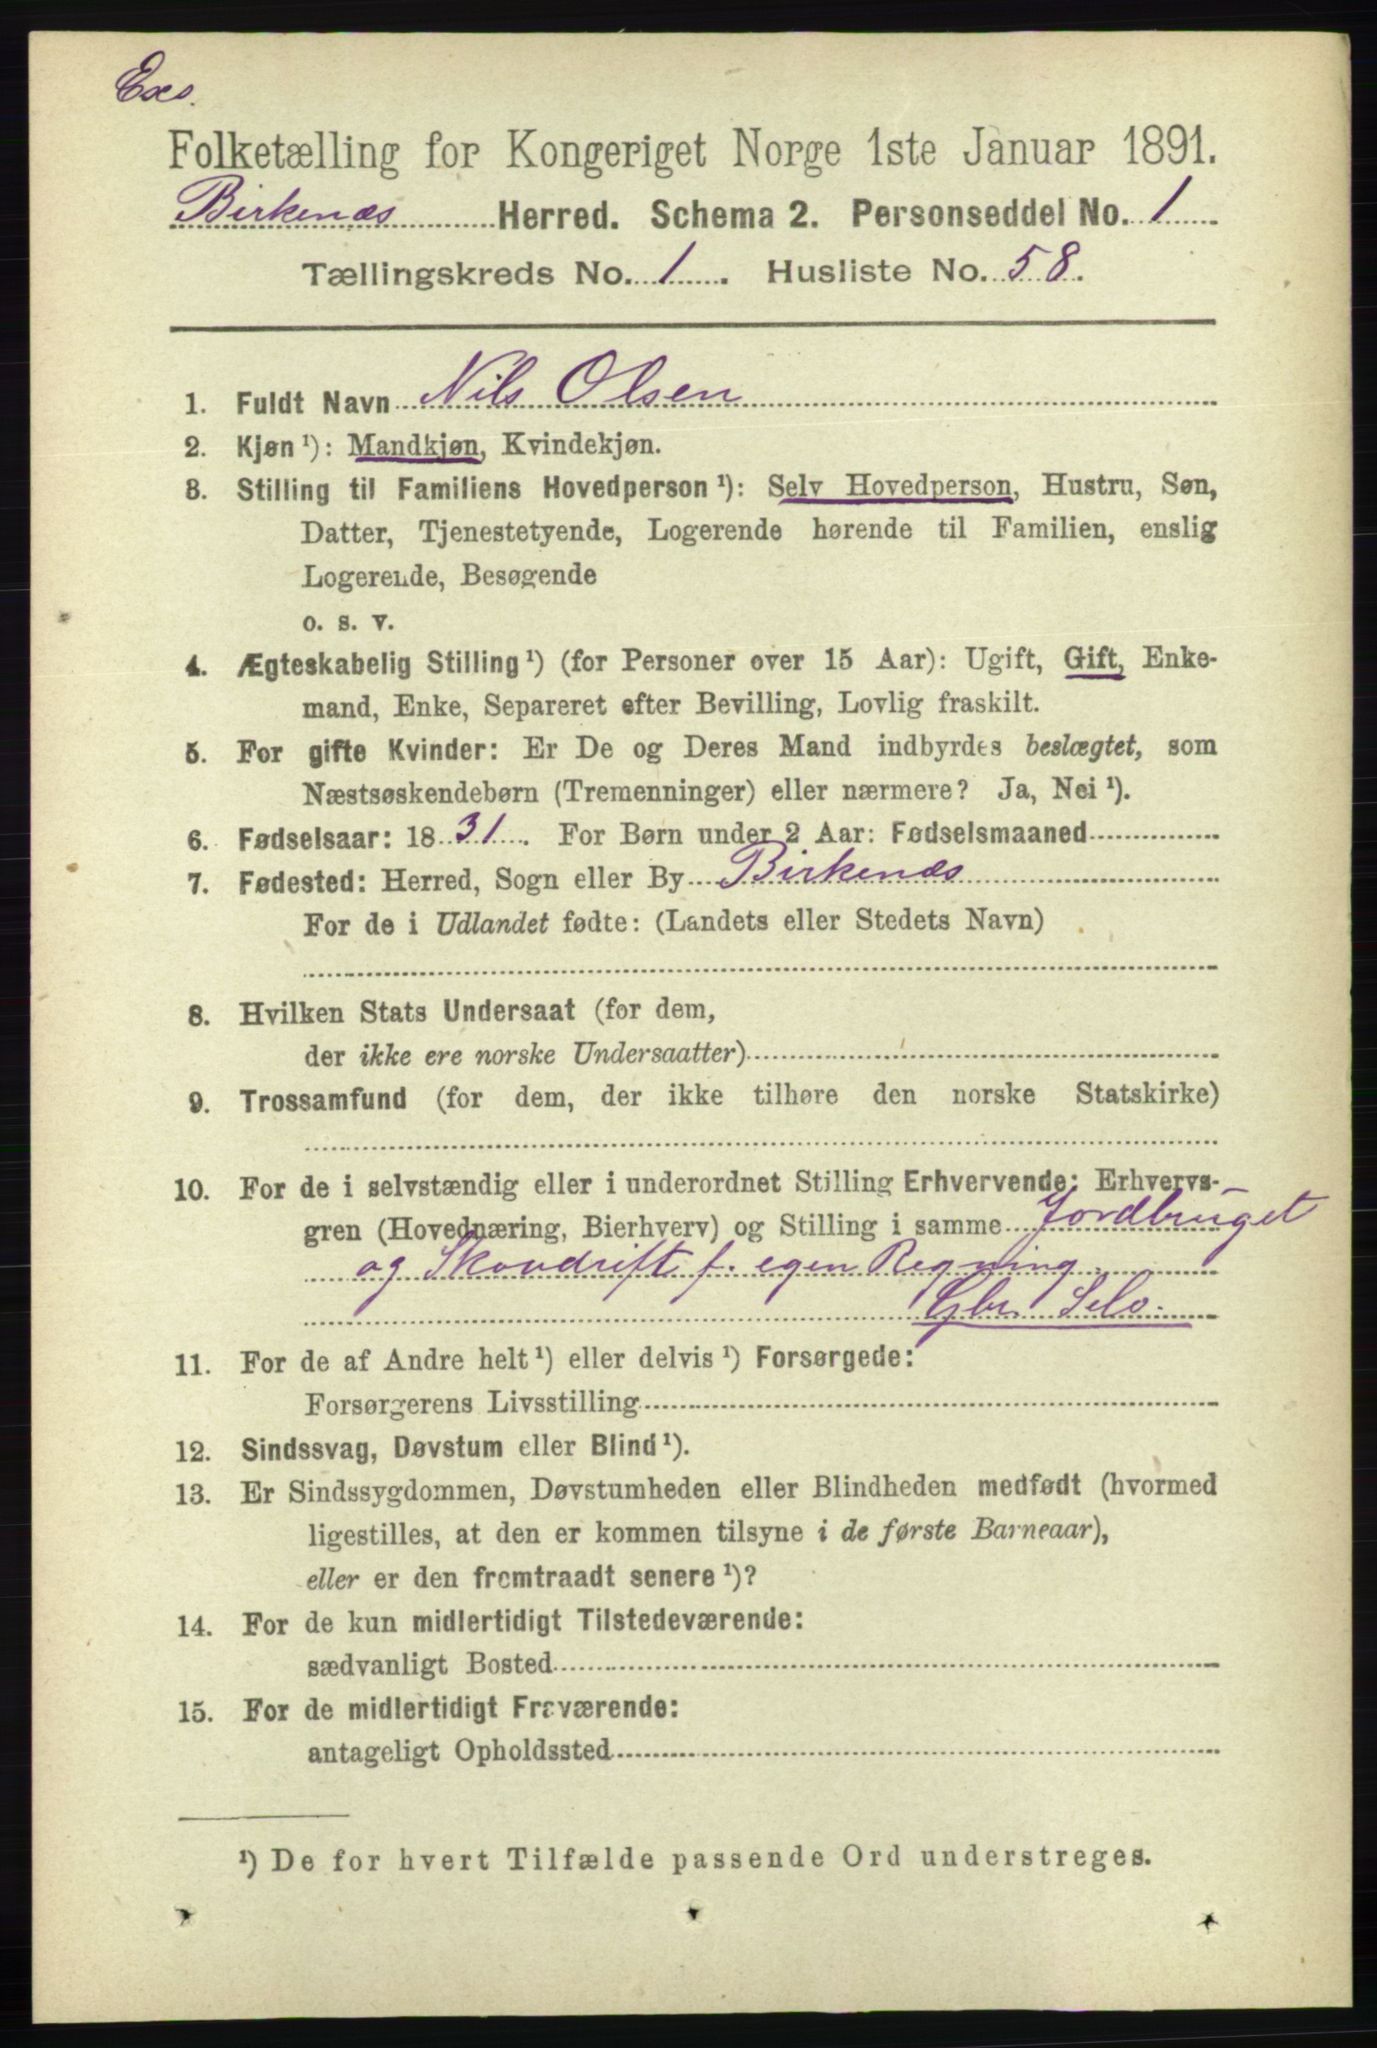 Folketælling for Kongeriget Norge 1ste Januar 1891.
Birkenæs Herred. Schema 2. Personseddel No. 1
Tællingskreds No. 1. Husliste No. 58.
1. Fuldt Navn Nils Olsen
2. Kjøn ¹): Mandkjøn, Kvindekjøn.
3. Stilling til Familiens Hovedperson ¹): Selv Hovedperson, Hustru, Søn,
Datter, Tjenestetyende, Logerende hørende til Familien, enslig
Logerende, Besøgende
o. s. v.
4. Ægteskabelig Stilling ¹) (for Personer over 15 Aar): Ugift, Gift, Enke-
mand, Enke, Separeret efter Bevilling, Lovlig fraskilt.
5. For gifte Kvinder: Er De og Deres Mand indbyrdes beslægtet, som
Næstsøskendebørn (Tremenninger) eller nærmere? Ja, Nei ¹).
6. Fødselsaar: 1831. For Børn under 2 Aar: Fødselsmaaned
7. Fødested: Herred, Sogn eller By Birkenæs
For de i Udlandet fødte: (Landets eller Stedets Navn)
8. Hvilken Stats Undersaat (for dem,
der ikke ere norske Undersaatter)
9. Trossamfund (for dem, der ikke tilhøre den norske Statskirke)
10. For de i selvstændig eller i underordnet Stilling Erhvervende: Erhvervs-
gren (Hovednæring, Bierhverv) og Stilling i samme Jordbruget
og Skovdrift f. egen Regning.
Gbr Selv.
11. For de af Andre helt ¹) eller delvis ¹) Forsørgede:
Forsørgerens Livsstilling
12. Sindssvag, Døvstum eller Blind ¹).
13. Er Sindssygdommen, Døvstumheden eller Blindheden medfødt (hvormed
ligestilles, at den er kommen tilsyne i de første Barneaar),
eller er den fremtraadt senere ¹)?
14. For de kun midlertidigt Tilstedeværende:
sædvanligt Bosted
15. For de midlertidigt Fraværende:
antageligt Opholdssted
¹) De for hvert Tilfælde passende Ord understreges.